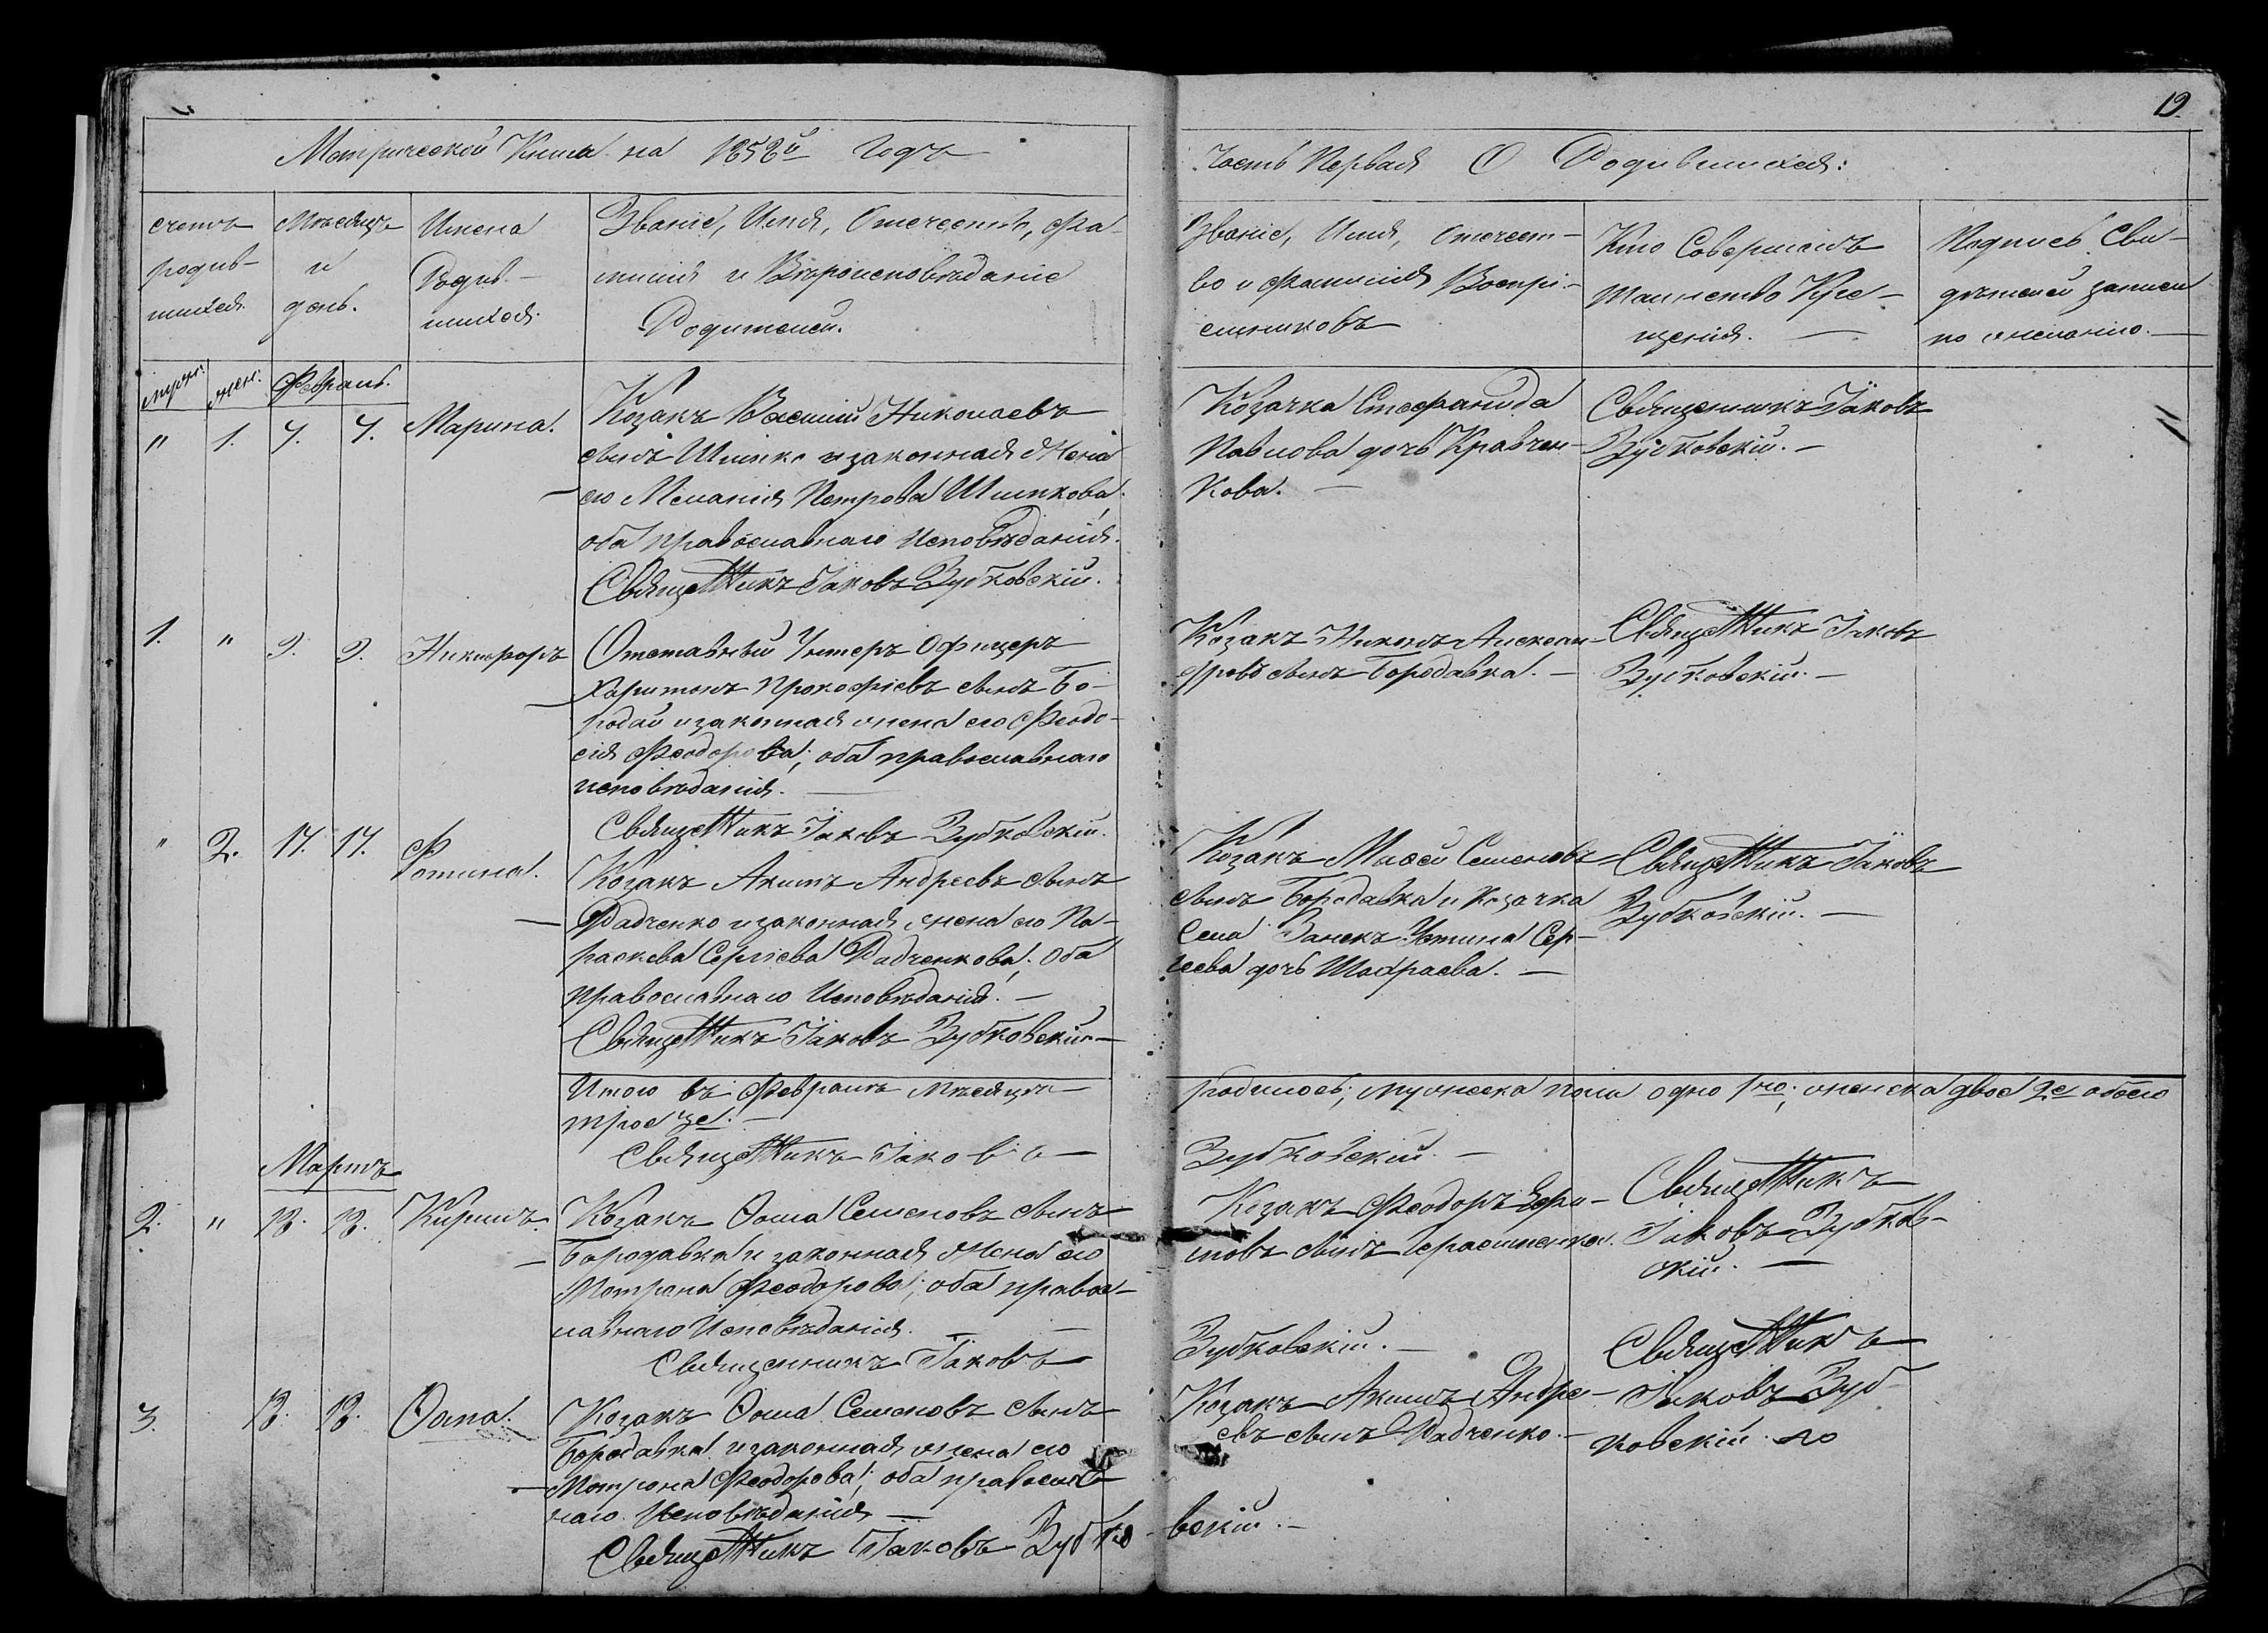 19.
Метрической Книга на 1852й Годъ
Часть Первая О Родившихся:
счетъ родив-шихся
Мѣсяцъ и день.
Имена Родив-шихся.
Званіе, Имя, Отечество, Фа-
милія и Вѣроисповѣданіе
Родителей.
Званіе, Имя, Отечест-
во и Фамилія Воспрі-
емниковъ
Кто Совершилъ
Таинство Кре-
щенія. —
Подпись Сви-
дѣтелей записи
по желанію. —
муж: жен: Февраль.
" 1. 7. 7. Марина.
Козакъ Василій Николаевъ
сынъ Шишка и законная жена
его Меланія Петрова Шишкова;
оба православнаго исповѣданія.
Священникъ Іаковъ Зубковскій.
Козачка Стефанида
Павлова дочь Кравчен-
кова. —
Священникъ Іаковъ
Зубковскій. —
1. " 9. 9. Никифоръ
Отставный Унтеръ Офицеръ
Харитонъ Прокофіевъ сынъ Бо-
родай и законная жена его Феодо-
сія Феодорова; оба православнаго
исповѣданія. —
Священникъ Іаковъ Зубковскій.
Козакъ Никонъ Алексан-
дровъ сынъ Бородавка. —
Священникъ Іаковъ
Зубковскій. —
" 2. 17. 17. Фотина.
Козакъ Акимъ Андреевъ сынъ
Радченко и законная жена его Па-
раскева Сергіева Радченкова; оба
православнаго Исповѣданія. —
Священникъ Іаковъ Зубковскій —
Козакъ Мойсей Семеновъ
сынъ Бородавка и козачка
Села Занекъ Устина Сер-
геева дочь
Священникъ Іаковъ
Зубковскій. —
Итого въ Февралѣ Мѣсяцѣ родилось; мужеска пола одно 1но; женска двое 2е обоего
трое 3е. —
Священникъ Іаковъ — Зубковскій. —
Мартъ
2. " 13. 13. Кирилъ.
Козакъ Ѳома Семеновъ сынъ
Бородавка и законная жена его
Мотрона Феодорова; оба правос-
лавнаго Исповѣданія. —
Священникъ Іаковъ Зубковскій. —
Козакъ Феодоръ Ефи-
мовъ сынъ Герасименко.
Священникъ
Іаковъ Зубков-
скій. —
3. 13. 13. Ѳома.
Козакъ Ѳома Семеновъ сынъ
Бородавка и законная жена его
Мотрона Феодорова; оба православ-
наго Исповѣданія —
Священникъ Іаковъ Зубко-вскій. —
Козакъ Акимъ Андре-
евъ сынъ Радченко. —
Священникъ
Іаковъ Зуб-
ковскій.